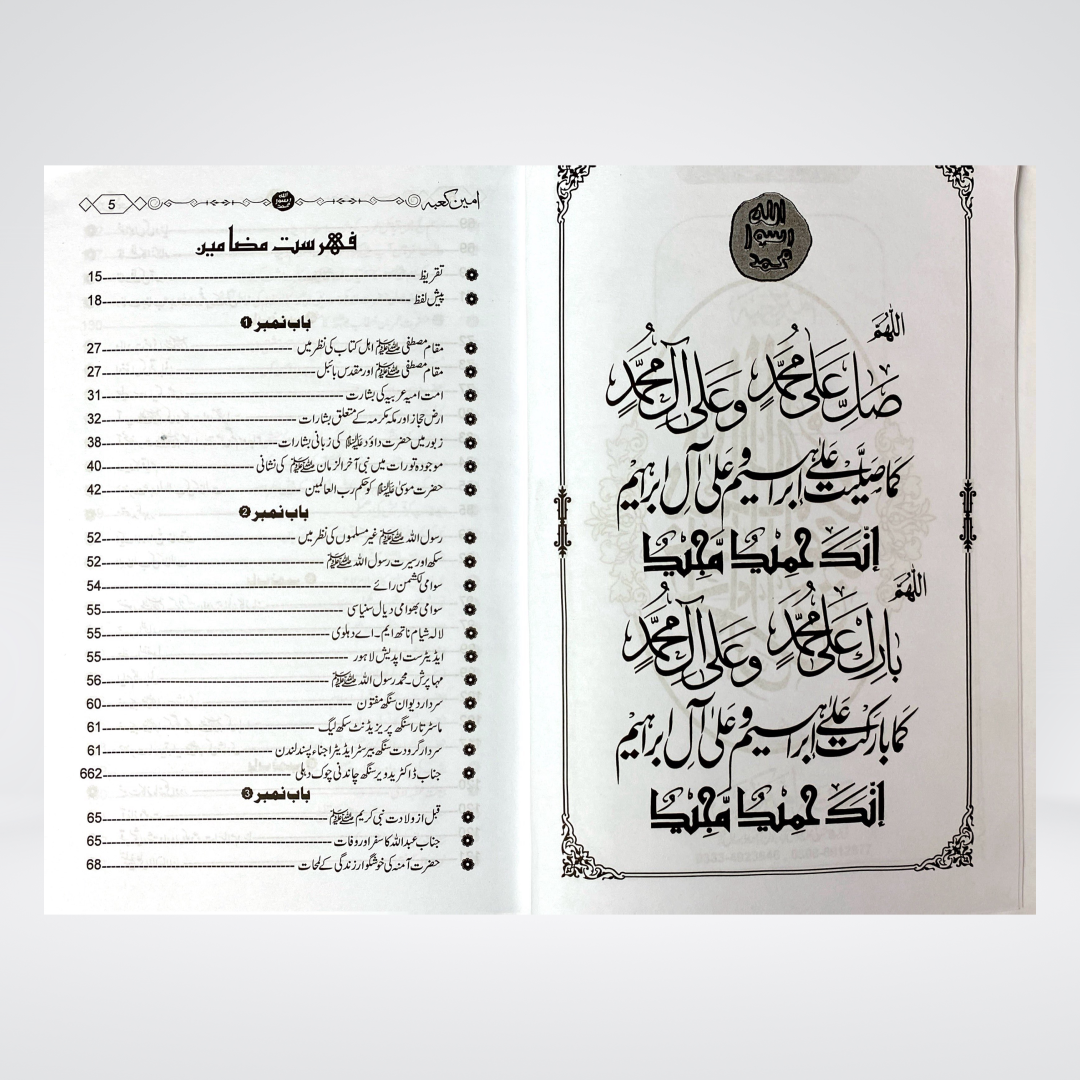 الله
رسول
محمد
اللّٰهُمَّ
صَلِّ عَلٰى مُحَمَّدٍ وَعَلٰى آلِ مُحَمَّدٍ
كَمَا صَلَّيْتَ عَلٰى إِبْرَاهِيْمَ وَعَلٰى آلِ إِبْرَاهِيْمَ
إِنَّكَ حَمِيْدٌ مَّجِيْدٌ
اللّٰهُمَّ
بَارِكْ عَلٰى مُحَمَّدٍ وَعَلٰى آلِ مُحَمَّدٍ
كَمَا بَارَكْتَ عَلٰى إِبْرَاهِيْمَ وَعَلٰى آلِ إِبْرَاهِيْمَ
إِنَّكَ حَمِيْدٌ مَّجِيْدٌ
امین کعبہ الله رسول محمد 5
فہرست مضامین
تقریظ 15
پیش لفظ 18
باب نمبر 1
مقام مصطفی ﷺ اہل کتاب کی نظر میں 27
مقام مصطفی ﷺ اور مقدس بائبل 27
امت امیہ عربیہ کی بشارت 31
ارض حجاز اور مکہ مکرمہ کے متعلق بشارات 32
زبور میں حضرت داؤد علیہ السلام کی زبانی بشارات 38
موجودہ تورات میں نبی آخر الزمان ﷺ کی نشانی 40
حضرت موسیٰ علیہ السلام کو حکم رب العالمین 42
باب نمبر 2
رسول اللہ ﷺ غیر مسلموں کی نظر میں 52
سکھ اور سیرت رسول اللہ ﷺ 52
سوامی لکشمن رائے 54
سوامی بھوامی دیال سنیاسی 55
لالہ شیام ناتھ ایم۔اے دہلوی 55
ایڈیٹر ست اپدیش لاہور 55
مہا پرش۔ محمد رسول اللہ ﷺ 56
سردار دیوان سنگھ مفتون 60
ماسٹر تارا سنگھ پریزیڈنٹ سکھ لیگ 61
سردار گرودت سنگھ بیرسٹر ایڈیٹر اجناء پسند لندن 61
جناب ڈاکٹر یدویر سنگھ چاندنی چوک دہلی 662
باب نمبر 3
قبل از ولادت نبی کریم ﷺ 65
جناب عبداللہ کا سفر اور وفات 65
حضرت آمنہ کی خوشگوار زندگی کے لمحات 68